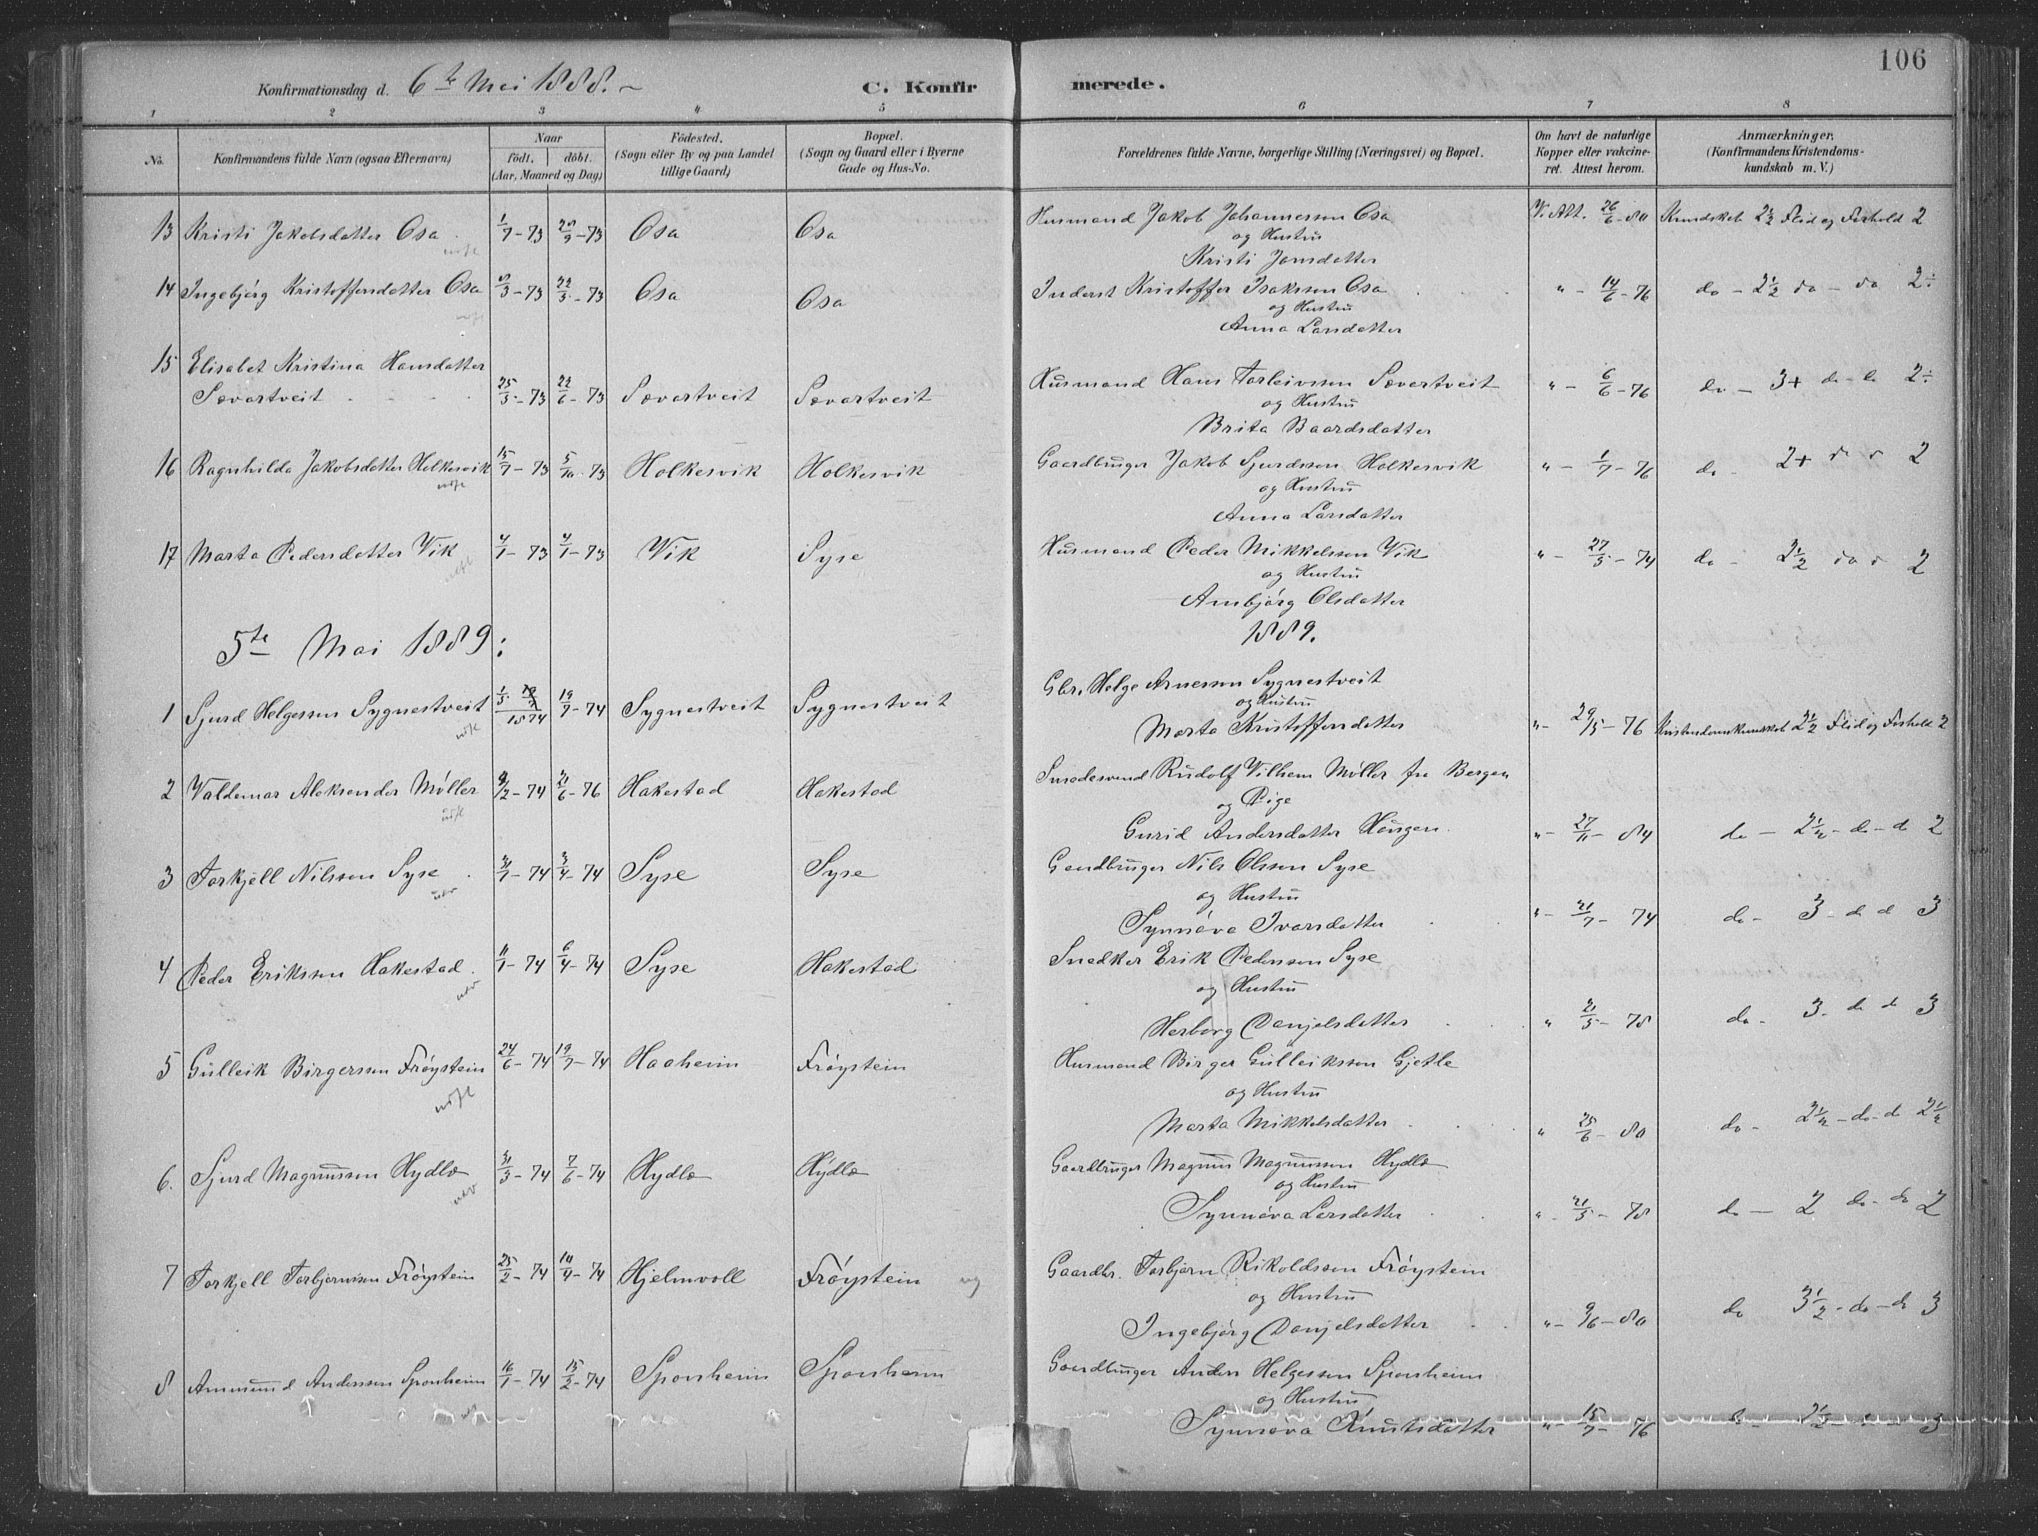 106
Konfirmationsdag d. 6te Mai 1888. C. Konfirmerede.
1 2 3 4 5 6 7 8
No. Konfirmandens fulde Navn (ogsaa Efternavn) Naar født. døbt. (Aar, Maaned og Dag) Fødested. (Sogn eller By og paa Landet tillige Gaard) Bopæl. (Sogn og Gaard eller i Byerne Gade og Hus-No. Forældrenes fulde Navne, borgerlige Stilling (Næringsvei) og Bopæl. Om havt de naturlige Kopper eller vakcineret. Attest herom. Anmærkninger. (Konfirmandens Kristendomskundskab m. V.)
13 Kristi Jakobsdatter Osa 1/7-73 Osa Osa Husmand Jakob Johannessen Osa V. Att. 26/6-80 Kundskab 2½ Flid og Forhold 2
og Hustru
Kristi Jonsdatter
14 Ingebjörg Kristoffersdatter Osa 22/3-73 Osa Osa Inderst Kristoffer Isaksson Osa " - 14/6-76 do - 2½ do - do 2÷
og Hustru
Anna Larsdatter
15 Elisabet Kristina Hansdatter
Sævartveit 25/5-73 22/6-73 Sævartveit Sævartveit Husmand Hans Torleivssen Sævartveit " - 6/6-76 do - 3+ do - do 2÷
og Hustru
Brita Baardsdatter
16 Ragnhilda Jakobsdatter Holkesvik 15/7-73 5/10-73 Holkesvik Holkesvik Gaardbruger Jakob Sjurdssen Holkesvik " - 1/7-76 do - 2+ 2
og Hustru
Anna Larsdatter
17 Marta Pedersdatter Vik 4/1-73 4/1-73 Vik Syse Husmand Peder Mikkelssen Vik " - 27/5-74 do - 2
og Hustru
Ambjörg Olsdatter
5te Mai 1889: 1889.
1 Sjurd Helgessen Sygnestveit 1/5 1874 19/7-74 Sygnestveit Sygnestveit Gbr. Helge Arnessen Sygnestveit
og Hustru
Marta Kristoffersdatter " - 29/5-76 Kristendomskundskab 2½ Flid og Forhold 2
2 Valdemar Aleksander Møller 9/2-74 21/6-76 Hakestad Hakestad Smedesvend Rudolf Vilhem Møller fra Bergen
og Pige
Gurid Andersdatter Haugen " - 27/11-84 do - 2½ - do - do 2
3 Torkjell Nilssen Syse 3/4-74 Syse Syse Gaardbruger Nils Olssen Syse
og Hustru
Synnøva Ivarsdatter " - 21/7-74 do - 3 - do do 3
4 Peder Eriksson Hakestad 11/1-74 6/4-74 Syse Hakestad Snedker Erik Pederssen Syse
og Hustru
Herborg Danjelsdatter " 21/5-78 do - 3 - do do 3
5 Gulleik Birgerssen Frøystein 24/6-74 19/7-74 Haaheim Frøystein Husmand Birger Gulleiksson Gjetle
og Hustru
Marta Mikkelsdatter " 25/6-80 do - 2½ - do - do 2½
6. Sjurd Magnussen Hydle 31/3-74 7/6-74 Hydle Hydle Gaardbruger Magnus Magnussen Hydle
og Hustru
Synnøva Larsdatter " - 21/5-78 do - 2 do - do 2
7 Torkjell Torbjørnssen Frøystein 25/2-74 Hjelmvoll Frøystein Gaardbr. Torbjørn Rikoldssen Frøystein
og Hustru
Ingebjörg Danjelsdatter " - 9/6-80 do 3½ - do - do 3
8 Ammund Anderssen Sponheim 16/1-74 15/2-74 Sponheim Sponheim Gaardbruger Anders Helgessen Sponheim
og Hustru
Synnøva Knutsdatter " - 15/7-76 do - 2½ - 3